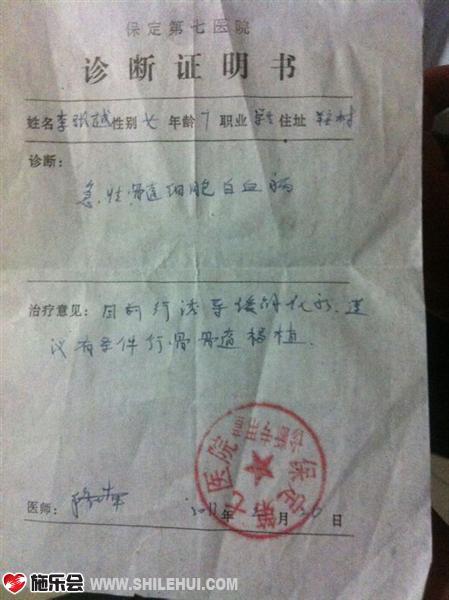 保定第七医院
诊断证明书
姓名 李 越 性别 女 年龄 7 职业 学生 住址 村
诊断：
急性髓细胞白血病
治疗意见： 目前行诱导缓解化疗，建
议有条件行骨骨髓移植．
医院
第七
保定
医师： 2011年 月 日
施乐会 WWW.SHILEHUI.COM